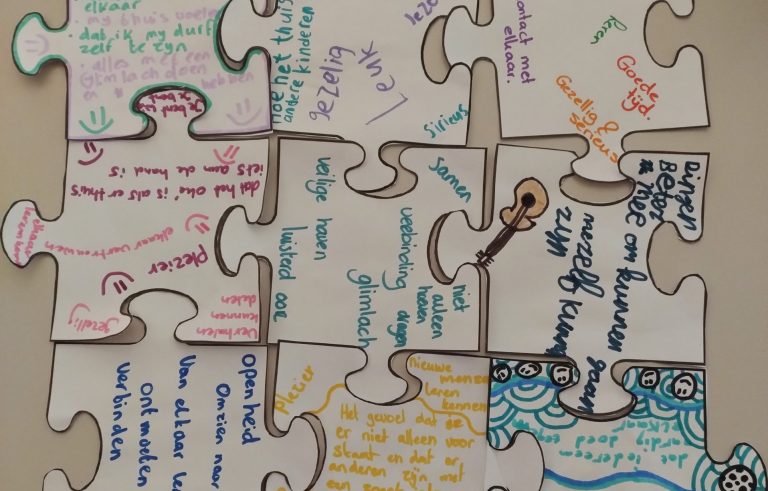 elkaar
• my thuis voelen
• dat ik my durf
zelf te zyn
• alles met een
Glimlach doen
hebben
en
je bent wie
je bent
hoe het thuis
andere kinderen
gezellig
Leuk
Sirieus
contact met
elkaar.
leren
Goede
tijd.
Gezellig &
serieus
dat het oke is als er thuis
iets aan de hand is
elkaar vertrouwen
elkaar
leren kennen
plezier
gezellig
Verhalen
kunnen
delen
veilige haven
luisterd oor
samen
verbinding
glimlach
niet
alleen
hoeven
dragen
Dingen
Beter
mee om kunnen gaan
mezelf kunnen
zyn
openheid
Omzien naar
Van elkaar
ontmoeten
verbinden
plezier
nieuwe
mensen
leren
kennen
Het gevoel dat je
er niet alleen voor
staat en dat er
anderen zijn met
een
dat iedereen
aardig doed tegen
elkaar